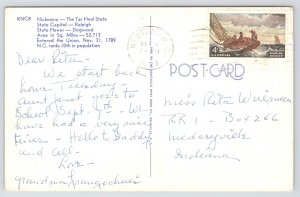 KNC8 Nickname — The Tar Heel State
State Capitol — Raleigh
State Flower — Dogwood
Area in Sq. Miles — 52,712
Entered the Union, Nov. 21, 1789
N.C. ranks 10th in population
Dear Rita-
We start back
here Tuesday -
Aunt Janet goes to
School Sept. 9th - We
have had a very nice
time - Hello to Daddy
and all-
Love-
Grandma
POST CARD
4¢
Miss Rita
RR 1 - Box 266
Medaryville
Indiana